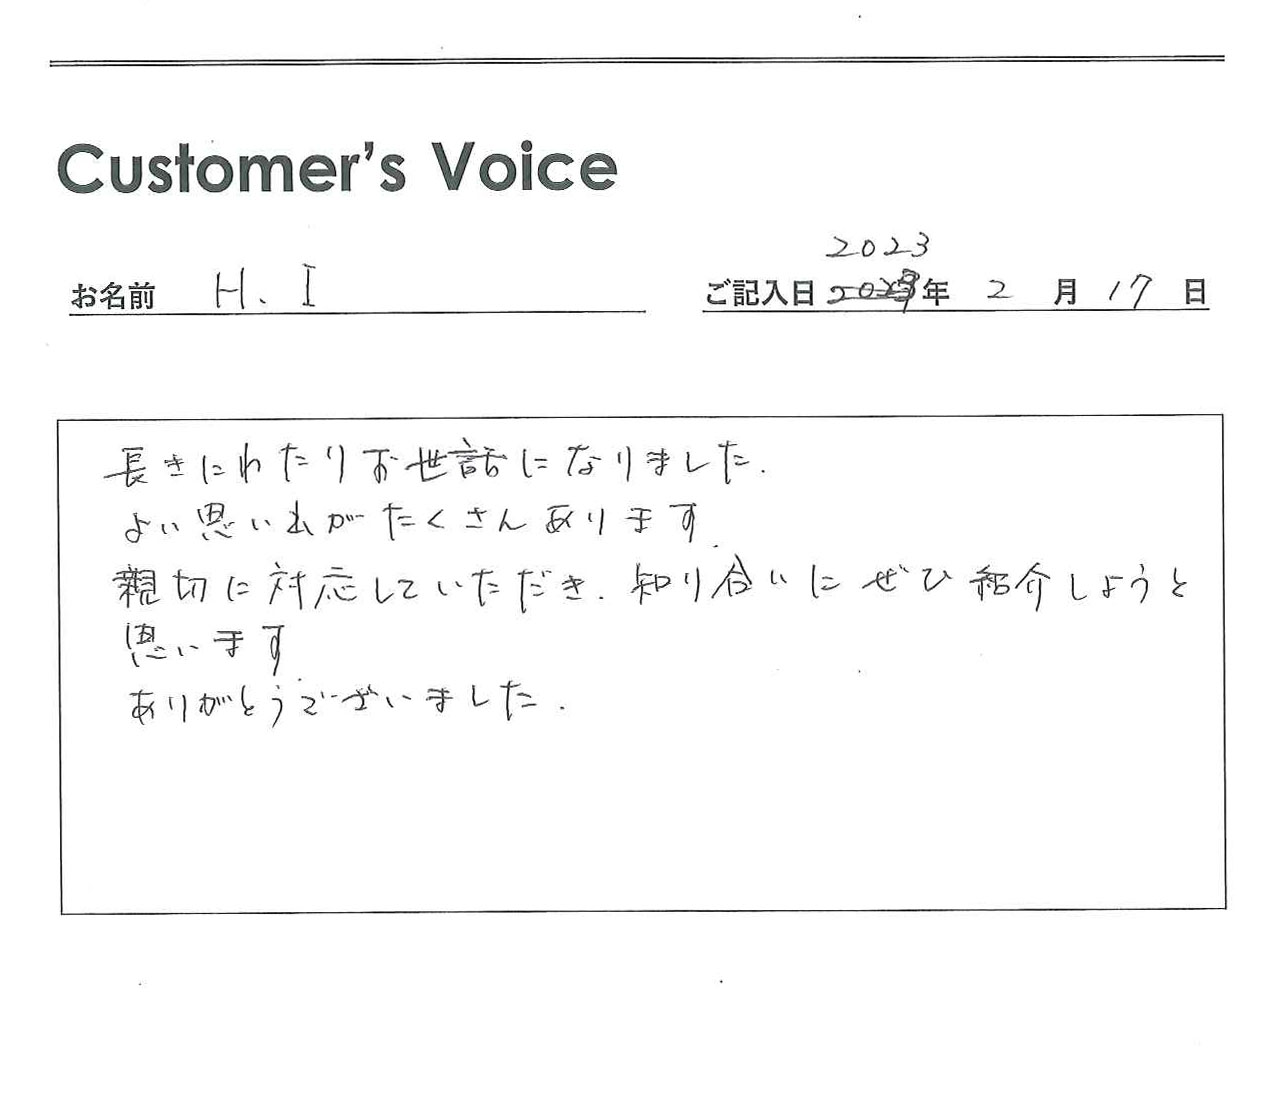 Customer's Voice
お名前 H. I
2023
ご記入日 年 2 月 17 日
長きにわたりお世話になりました.
よい思い出がたくさんあります.
親切に対応していただき. 知り合いにぜひ紹介しようと
思います.
ありがとうございました.